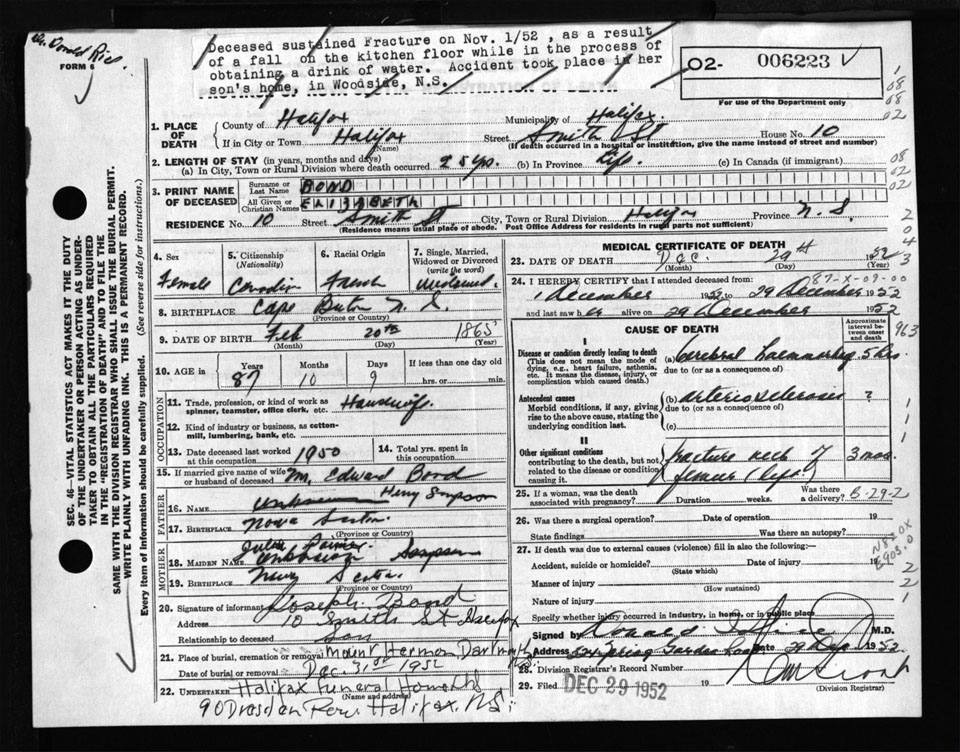 Dr. Donald Rice
FORM 6
Deceased sustained Fracture on Nov. 1/52 , as a result
of a fall on the kitchen floor while in the process of
obtaining a drink of water. Accident took place in her
son's home, in Woodside, N.S.
02- 006223
For use of the Department only
1. PLACE OF DEATH
County of Halifax Municipality of Halifax
If in City or Town Halifax (Name) Street Smith St House No. 10
(If death occurred in a hospital or institution, give the name instead of street and number)
2. LENGTH OF STAY (in years, months and days)
(a) In City, Town or Rural Division where death occurred 25 yrs. (b) In Province Life (c) In Canada (if immigrant)
3. PRINT NAME OF DECEASED
Surname or Last Name BOND
All Given or Christian Names ELIZABETH
RESIDENCE No. 10 Street Smith St City, Town or Rural Division Halifax Province N. S.
(Residence means usual place of abode. Post Office Address for residents in rural parts not sufficient)
4. Sex Female
5. Citizenship (Nationality) Canadian
6. Racial Origin French
7. Single, Married, Widowed or Divorced (write the word) Widowed
8. BIRTHPLACE Cape Breton N. S.
(Province or Country)
9. DATE OF BIRTH Feb 20th 1865
(Month) (Day) (Year)
10. AGE in Years 87 Months 10 Days 9 If less than one day hrs. or min.
OCCUPATION
11. Trade, profession, or kind of work as spinner, teamster, office clerk, etc. Housewife
12. Kind of industry or business, as cotton-mill, lumbering, bank, etc.
13. Date deceased last worked at this occupation 1950
14. Total yrs. spent in this occupation
15. If married give name of wife or husband of deceased M. Edward Bond
FATHER
16. Name Unknown Henry Simpson
17. Birthplace Nova Scotia
(Province or Country)
MOTHER
18. Maiden Name Unknown Simpson
19. Birthplace Nova Scotia
(Province or Country)
20. Signature of informant Joseph Bond
Address 10 Smith St Halifax
Relationship to deceased Son
21. Place of burial, cremation or removal Mount Hermon Dartmouth
Date of burial or removal Dec. 31st 1952
22. UNDERTAKER Halifax Funeral Home Ltd
(Name and address)
90 Dresden Row Halifax N.S.
MEDICAL CERTIFICATE OF DEATH
23. DATE OF DEATH Dec. 29th 1952
(Month) (Day) (Year)
087-X-09-00
24. I HEREBY CERTIFY that I attended deceased from:
1 December 1952 to 29 December 1952
and last saw her alive on 29 December 1952
CAUSE OF DEATH
Approximate interval between onset and death
I
Disease or condition directly leading to death
(This does not mean the mode of dying, e.g., heart failure, asthenia, etc. It means the disease, injury, or complication which caused death.)
(a) Cerebral haemorrhage 5 hrs
due to (or as a consequence of)
Antecedent causes
Morbid conditions, if any, giving rise to the above cause, stating the underlying condition last.
(b) Arteriosclerosis ?
due to (or as a consequence of)
(c)
II
Other significant conditions
contributing to the death, but not related to the disease or condition causing it.
fracture neck of 3 mos.
femur (hip)
25. If a woman, was the death associated with pregnancy? Duration weeks. Was there a delivery?
B-29-2
26. Was there a surgical operation? Date of operation 19
State findings Was there an autopsy?
27. If death was due to external causes (violence) fill in also the following:
Accident, suicide or homicide? Date of injury 19
(State which)
Manner of injury
(How sustained)
Nature of injury
Specify whether injury occurred in industry, in home, or in public place
Signed by M.D.
Address Spring Garden Road Date 29 Dec 1952
28. Division Registrar's Record Number
29. Filed DEC 29 1952
(Division Registrar)
SEC. 46—VITAL STATISTICS ACT MAKES IT THE DUTY
OF THE UNDERTAKER OR PERSON ACTING AS UNDER-
TAKER TO OBTAIN ALL THE PARTICULARS REQUIRED
IN THE "REGISTRATION OF DEATH" AND TO FILE THE
SAME WITH THE DIVISION REGISTRAR WHO SHALL ISSUE THE BURIAL PERMIT.
WRITE PLAINLY WITH UNFADING INK. THIS IS A PERMANENT RECORD.
Every item of information should be carefully supplied. (See reverse side for instructions.)